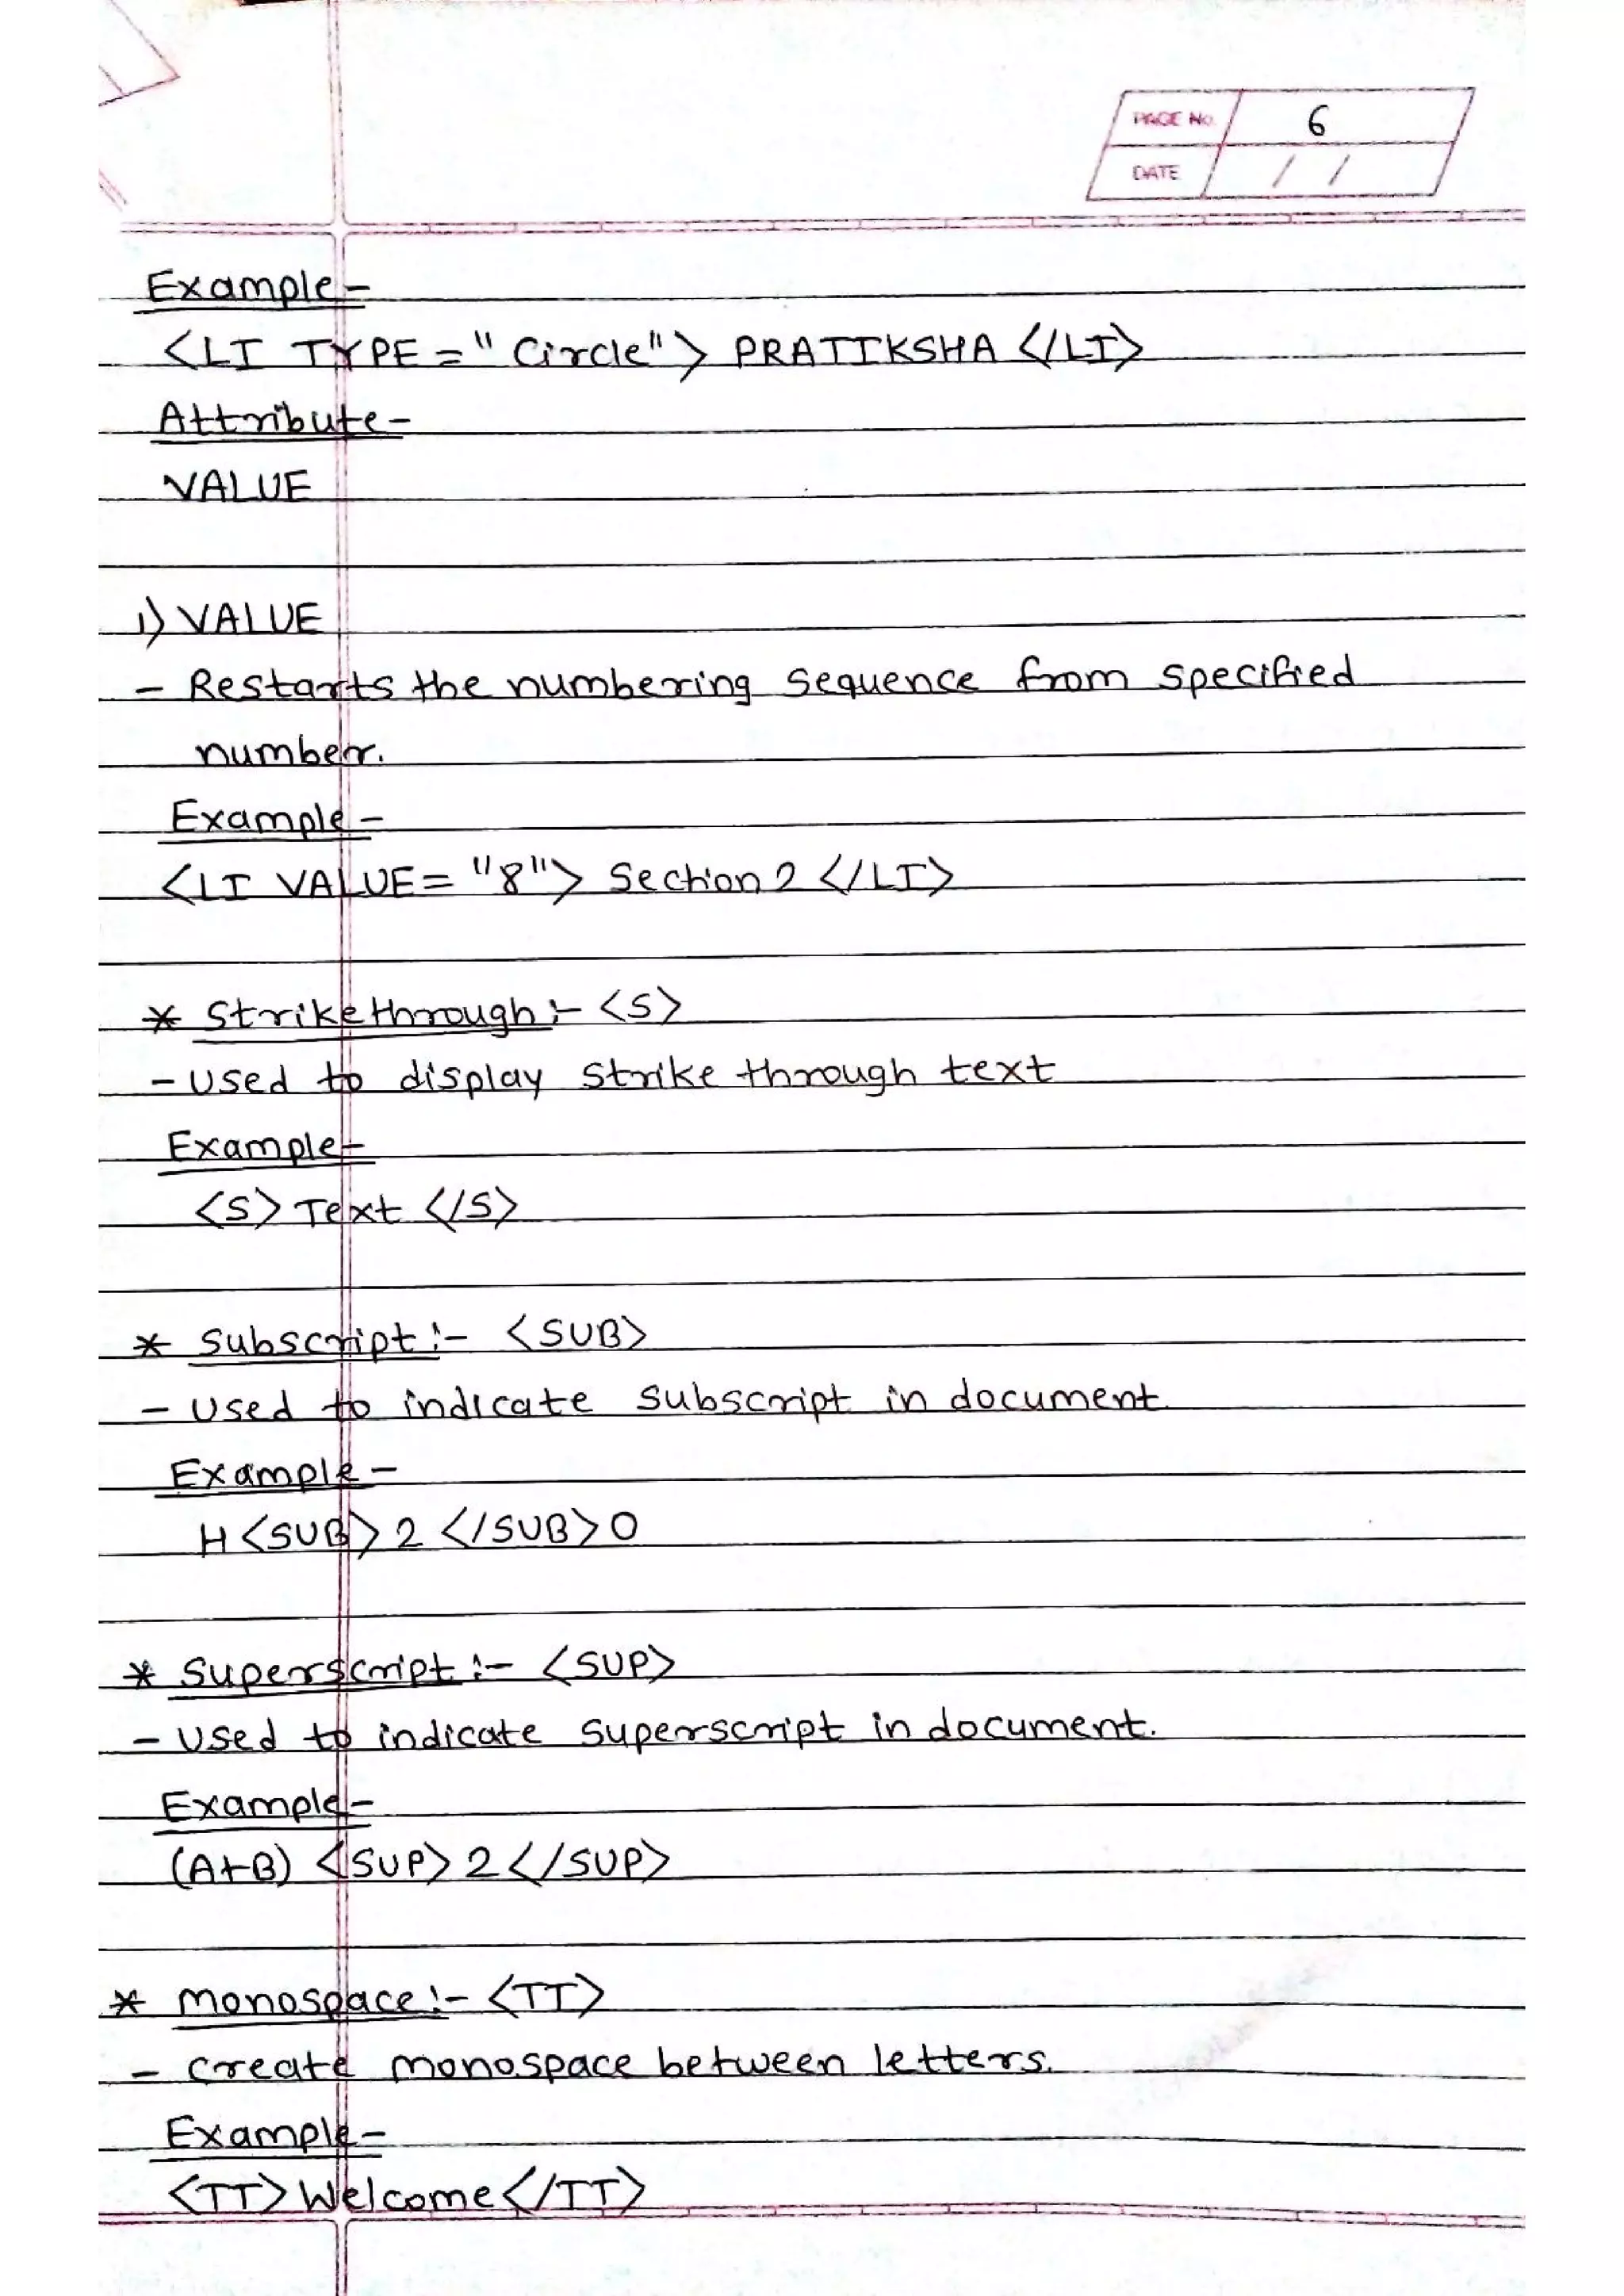 PAGE No. 6
DATE / /
Example -
<LI TYPE = "Circle"> PRATIKSHA </LI>
Attribute -
VALUE
1) VALUE
- Restarts the numbering sequence from specified
number.
Example -
<LI VALUE = "8"> Section 2 </LI>
* Strikethrough :- <S>
- Used to display strike through text
Example -
<S> Text </S>
* Subscript :- <SUB>
- Used to indicate subscript in document.
Example -
H <SUB> 2 </SUB> O
* Superscript :- <SUP>
- Used to indicate superscript in document.
Example -
(A+B) <SUP> 2 </SUP>
* Monospace :- <TT>
- Create monospace between letters.
Example -
<TT> Welcome </TT>